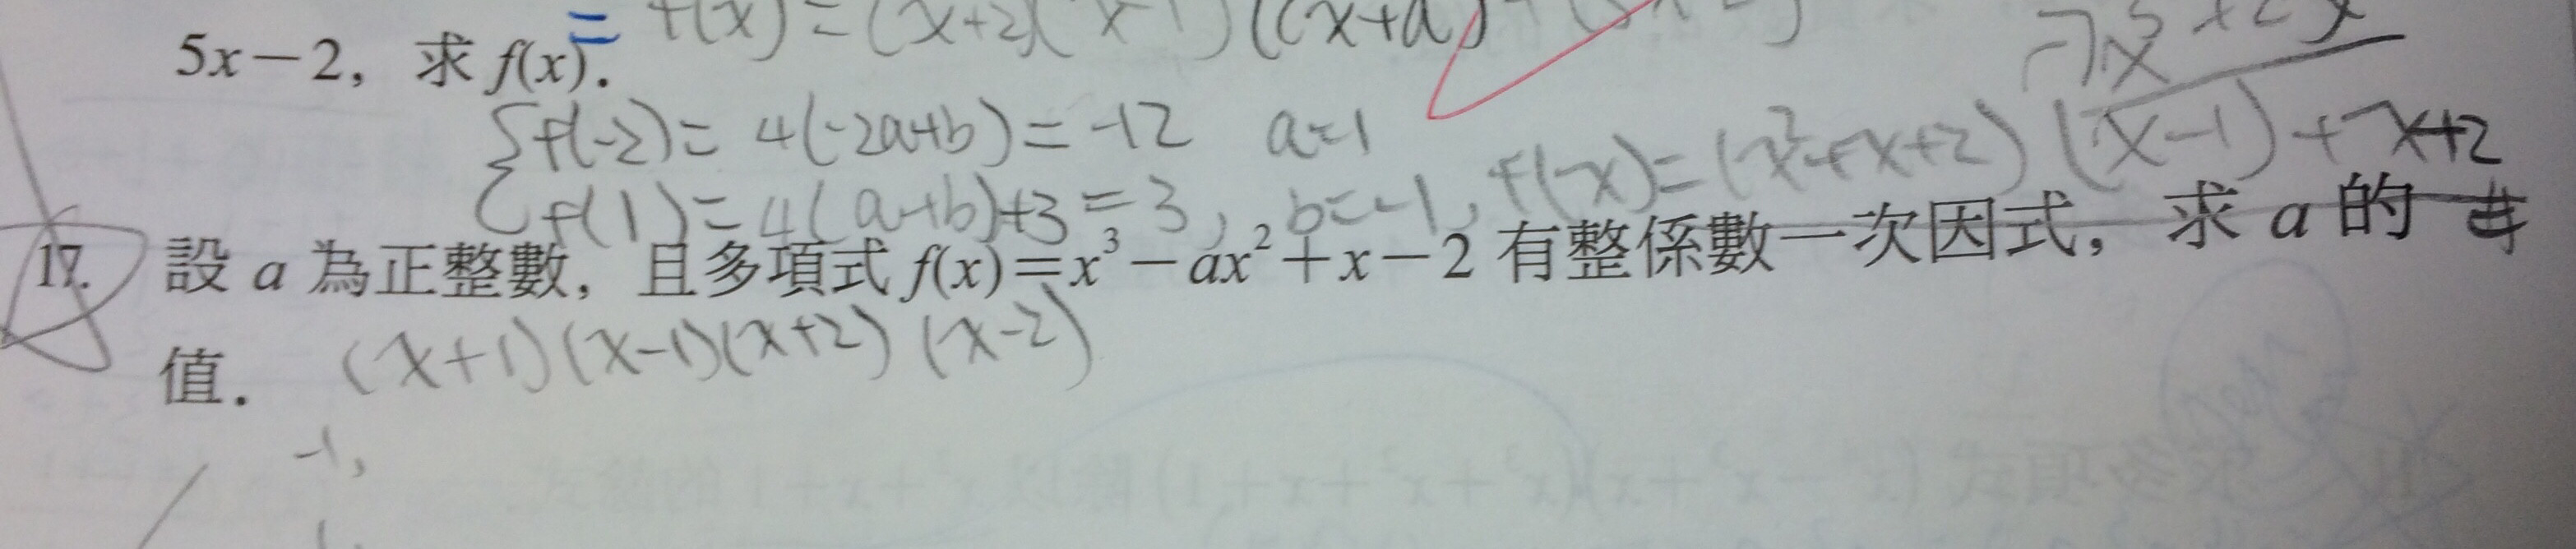 f(x)=(x+2)(x-1)(cx+d)
5x-2, 求 f(x).
f(-2)= 4(-2a+b)= -12 a=1
f(1)=4(a+b)+3=3, b=-1, f(x)=(x²+x+2)(x-1)+7x+2
17. 設 a 為正整數, 且多項式 f(x)=x³-ax²+x-2 有整係數一次因式, 求 a 的
值. (x+1)(x-1)(x+2)(x-2)
-1,